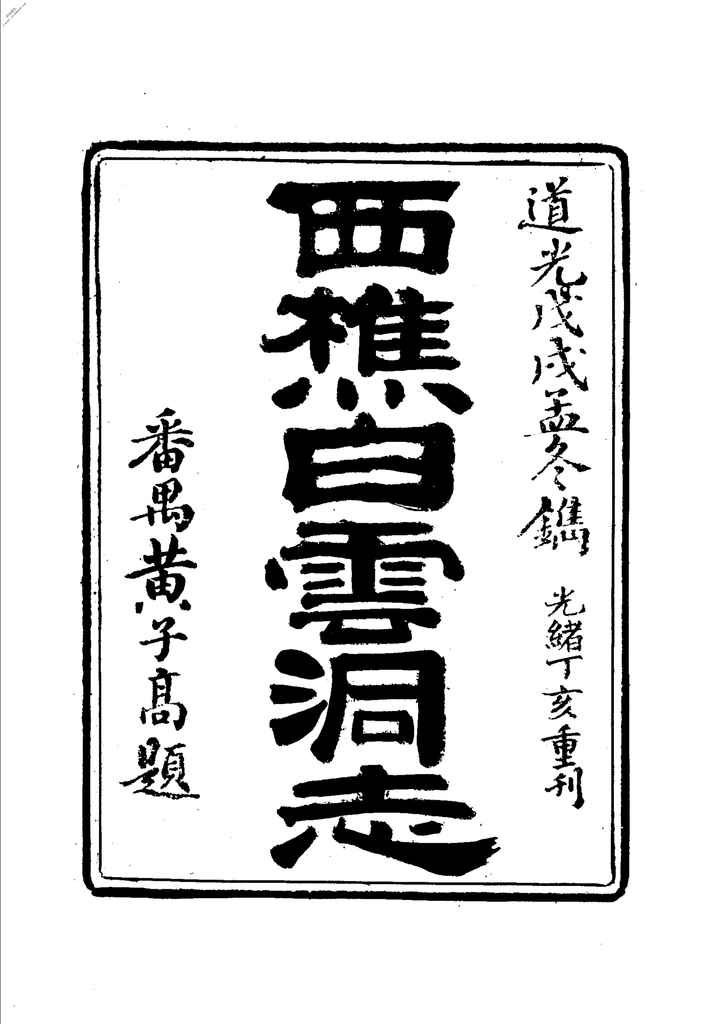 道光戊戌孟冬鐫 光緒丁亥重刊
西樵白雲洞志
番禺黄子高題